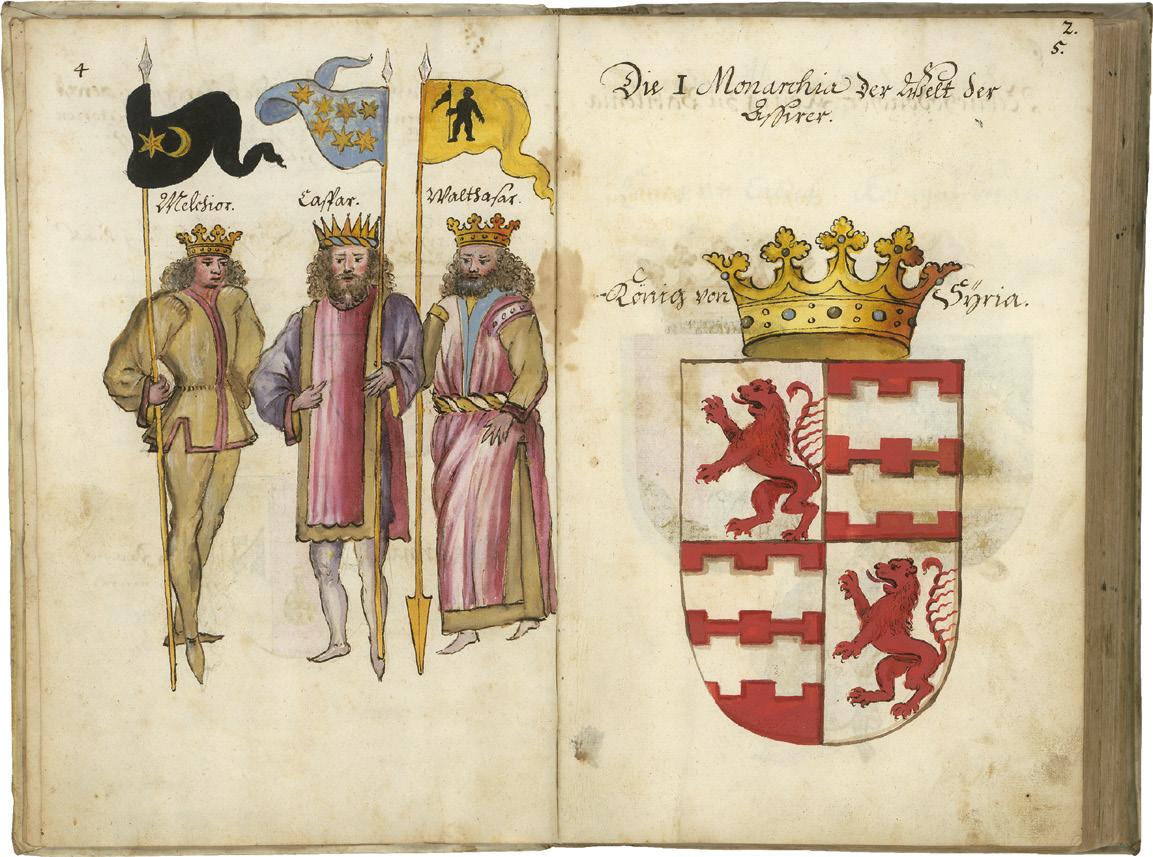 4
Melchior.
Caspar.
Walthasar.
2.
5.
Die I Monarchia der Welt der
Assirer.
König von Syria.